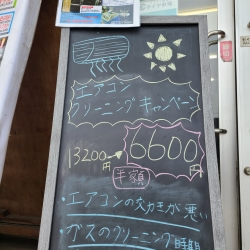 エアコン
クリーニングキャンペーン
13200円→6600円
半額
・エアコンの効きが悪い
のクリーニング時期